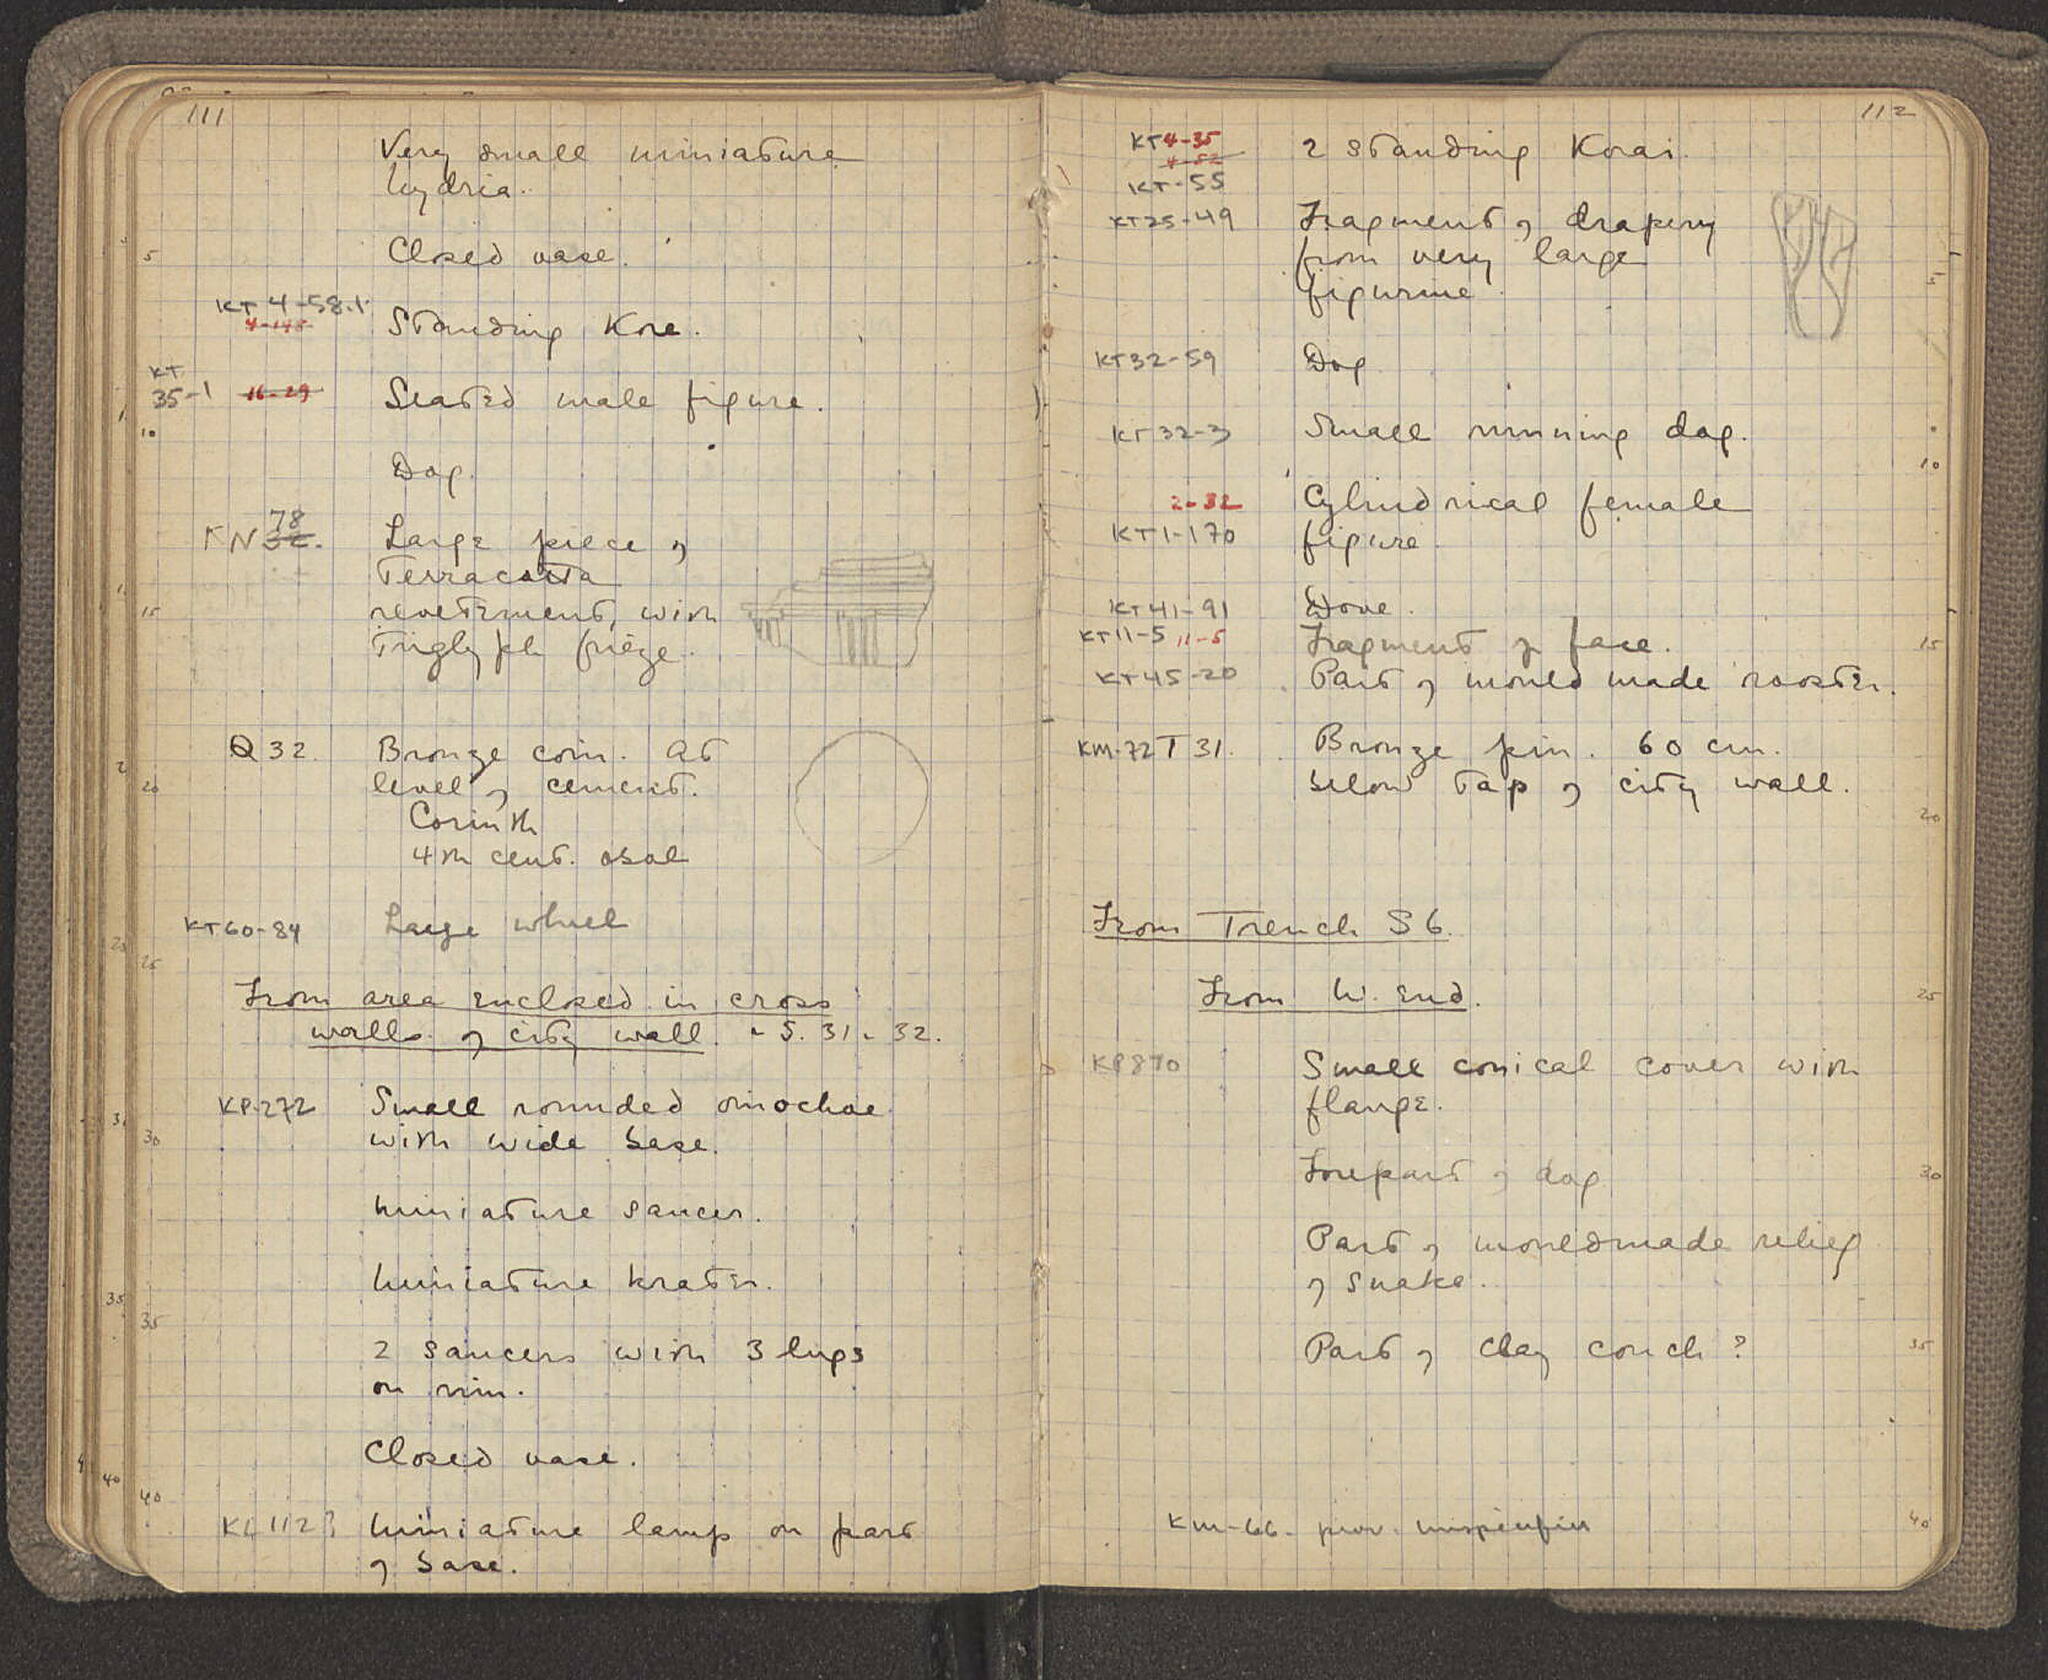 111
Very small miniature
hydria.
Closed vase.
KT 4-58.1
4-148
Standing Kore.
KT
35-1 16-29 Seated male figure.
Dog.
78
KN 32. Large piece of
Terracotta
revetement, with
Triglyph frieze.
Q 32. Bronze coin. At
level of cement.
Corinth
4th cent. obol
KT60-84 Large wheel
From area enclosed in cross
walls of city wall. - S. 31 - 32.
KP-272 Small rounded oinochoe
with wide base.
Miniature saucer.
Miniature krater.
2 saucers with 3 lugs
on rim.
Closed vase.
KL 112? Miniature lamp on part
of base.
5
10
15
20
25
30
35
40
112
KT4-35 2 standing Korai.
4-52
KT-55
KT25-49 Fragment of drapery
from very large
figurine.
KT32-59 Dog
KT32-3 Small running dog.
2-32 Cylindrical female
KT1-170 figure.
KT41-91 Dove.
KT11-5 11-5 Fragment of face.
KT45-20 Part of mould made rooster.
KM-72 T 31. Bronze pin. 60 cm.
below top of city wall.
From Trench S 6.
From W. end.
KP870 Small conical cover with
flange.
Forepart of dog
Part of mouldmade relief
of snake.
Part of clay couch?
KM-66- prov.
5
10
15
20
25
30
35
40